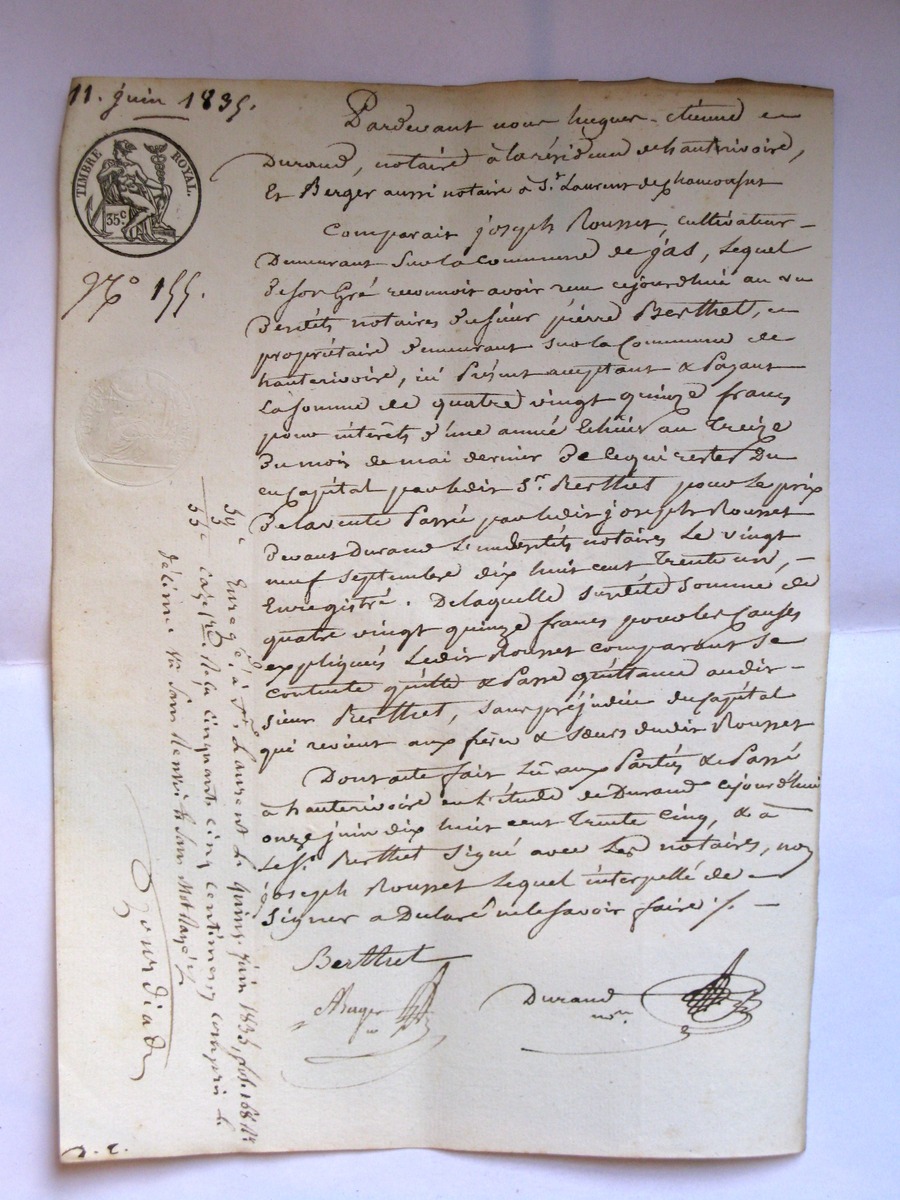 11. juin 1835.
TIMBRE ROYAL.
35c
No 155.
Pardevant nous hugues-étienne
Durand, notaire à la résidence de hauterivoire,
Et Berger aussi notaire à St. Laurent de chamousset
Comparait joseph Rousset, cultivateur
Demeurant sur la commune de gas, Lequel
De son Gré reconnoit avoir reçu cejourdhui au vu
Desdits notaires du sieur pierre Berthet,
propriétaire demeurant sur la Commune de
hauterivoire, ici Présent acceptant & Payant
La somme de quatre vingt quinze francs
pour intérêts d'une année Echüs au Treize
Du mois de mai dernier De ce qui reste Du
en Capital par ledit Sr. Berthet pour Le prix
De la vente Passée par ledit joseph Rousset
Devant Durand L'un desdits notaires Le vingt
neuf septembre dix huit cent trente un,
Enregistré. De laquelle susdite somme de
quatre vingt quinze francs pour les Causes
expliqués Ledit Rousset comparant se
contente quitte & Passe quittance audit
sieur Berthet, sans préjudice du Capital
qui revient aux frères & sœurs dudit Rousset
Dont acte fait Lü aux Parties & Passé
à hauterivoire en l'étude de Durand cejourdhui
onze juin dix huit cent trente Cinq, & a
Le Sr. Berthet signé avec Les notaires, non
joseph Rousset Lequel interpellé de
signer a Déclaré ne le savoir faire ./.
Berthet
Berger
Durand
nore
Enregé. à St. Laurent Le quinze juin 1835, fol. 168
case Reçu Cinquante cinq centimes y compris le
décime
50c
5
55c
Gourdiade
D. C.